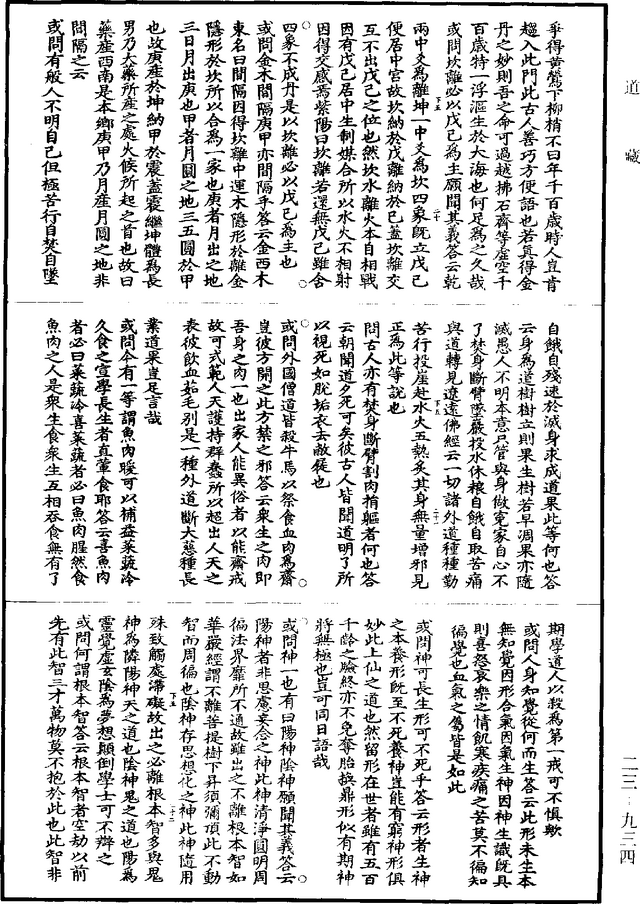 道藏
爭得黃鶯下柳梢不曰年千百歲時人豈肯
趨入此門此古人善巧方便語也若真得金
丹之妙則吾之命可過越拂石齊等虛空千
百歲特一浮漚生於大海也何足為之久哉
或問坎離必以戊己為主願聞其義答云乾
兩中爻為離坤一中爻為坎四象既立戊己
便居中宮故坎納於戊離納於己蓋坎離交
互不出戊己之位也然坎水離火本自相戰
因有戊己居中生制媒合所以水火不相射
因得交感焉紫陽曰坎離若還無戊己雖含
四象不成丹是以坎離必以戊己為主也
或問金木間隔庚甲亦間隔乎答云金西木
東名曰間隔因得坎離中運木隱形於離金
隱形於坎所以合為一家也庚者月出之地
三日月出庚也甲者月圓之地三五圓於甲
也故庚產於坤納甲於震蓋震繼坤體為長
男乃大藥所產之處火候所起之首也故曰
藥產西南是本鄉庚甲乃月產月圓之地非
問隔之云
或問有般人不明自己但極苦行自焚自墜
自餓自殘速於滅身求成道果此等何也答
云身為道樹樹立則果生樹若早凋果亦隨
滅愚人不明本意只管與身做冤家自心不
了焚身斷臂墜巖投水休粮自餓自取苦痛
與道轉見遼遠佛經云一切諸外道種種勤
苦行投崖赴水火五熱炙其身無量增邪見
正為此等說也
問古人亦有焚身斷臂割肉捎軀者何也答
云朝聞道夕死可矣彼古人皆聞道明了所
以視死如脫垢衣去敝屣也
或問外國僧道皆殺牛馬以祭食血肉為齋
豈彼方開之此方禁之邪答云眾生之肉即
吾身之肉一也出家人能異俗者以能齋戒
故可式範人天護持群蠢所以超出人天之
表彼飲血茹毛別是一種外道斷大慈種長
業道果豈足言哉
或問今有一等謂魚肉暖可以補益菜蔬冷
久食之宣學長生者真葷食耶答云喜魚肉
者必曰菜蔬冷喜菜蔬者必曰魚肉腥然食
魚肉之人是眾生食眾生互相吞食無有了
期學道人以殺為第一戒可不慎歟
或問人身知覺從何而生答云此形未生本
無知覺因形合氣因氣生神因神生識既具
則喜怒哀樂之情飢寒疾痛之苦莫不徧知
徧覺也血氣之屬皆是如此
或問神可長生形可不死乎答云形者生神
之本養形既至不死養神豈能有窮神形俱
妙此上仙之道也然留形在世者雖有五百
千齡之驗終亦不免奪胎換鼎形似有期神
將無極也豈可同日語哉
或問神一也有曰陽神陰神願聞其義答云
陽神者非思慮妄合之神此神清淨圓明周
徧法界靡所不通故雖出之不離根本智如
華嚴經謂不離菩提樹下昇須彌頂此不動
智而周徧也陰神存思想化之神此神隨用
殊致觸處滯礙故出之必離根本智多與鬼
神為隣陽神天之道也陰神鬼之道也陽為
靈覺虛玄陰為夢想顛倒學士可不辨之
或問何謂根本智答云根本智者空劫以前
先有此智三才萬物莫不抱於此也此智非
二三·九三四